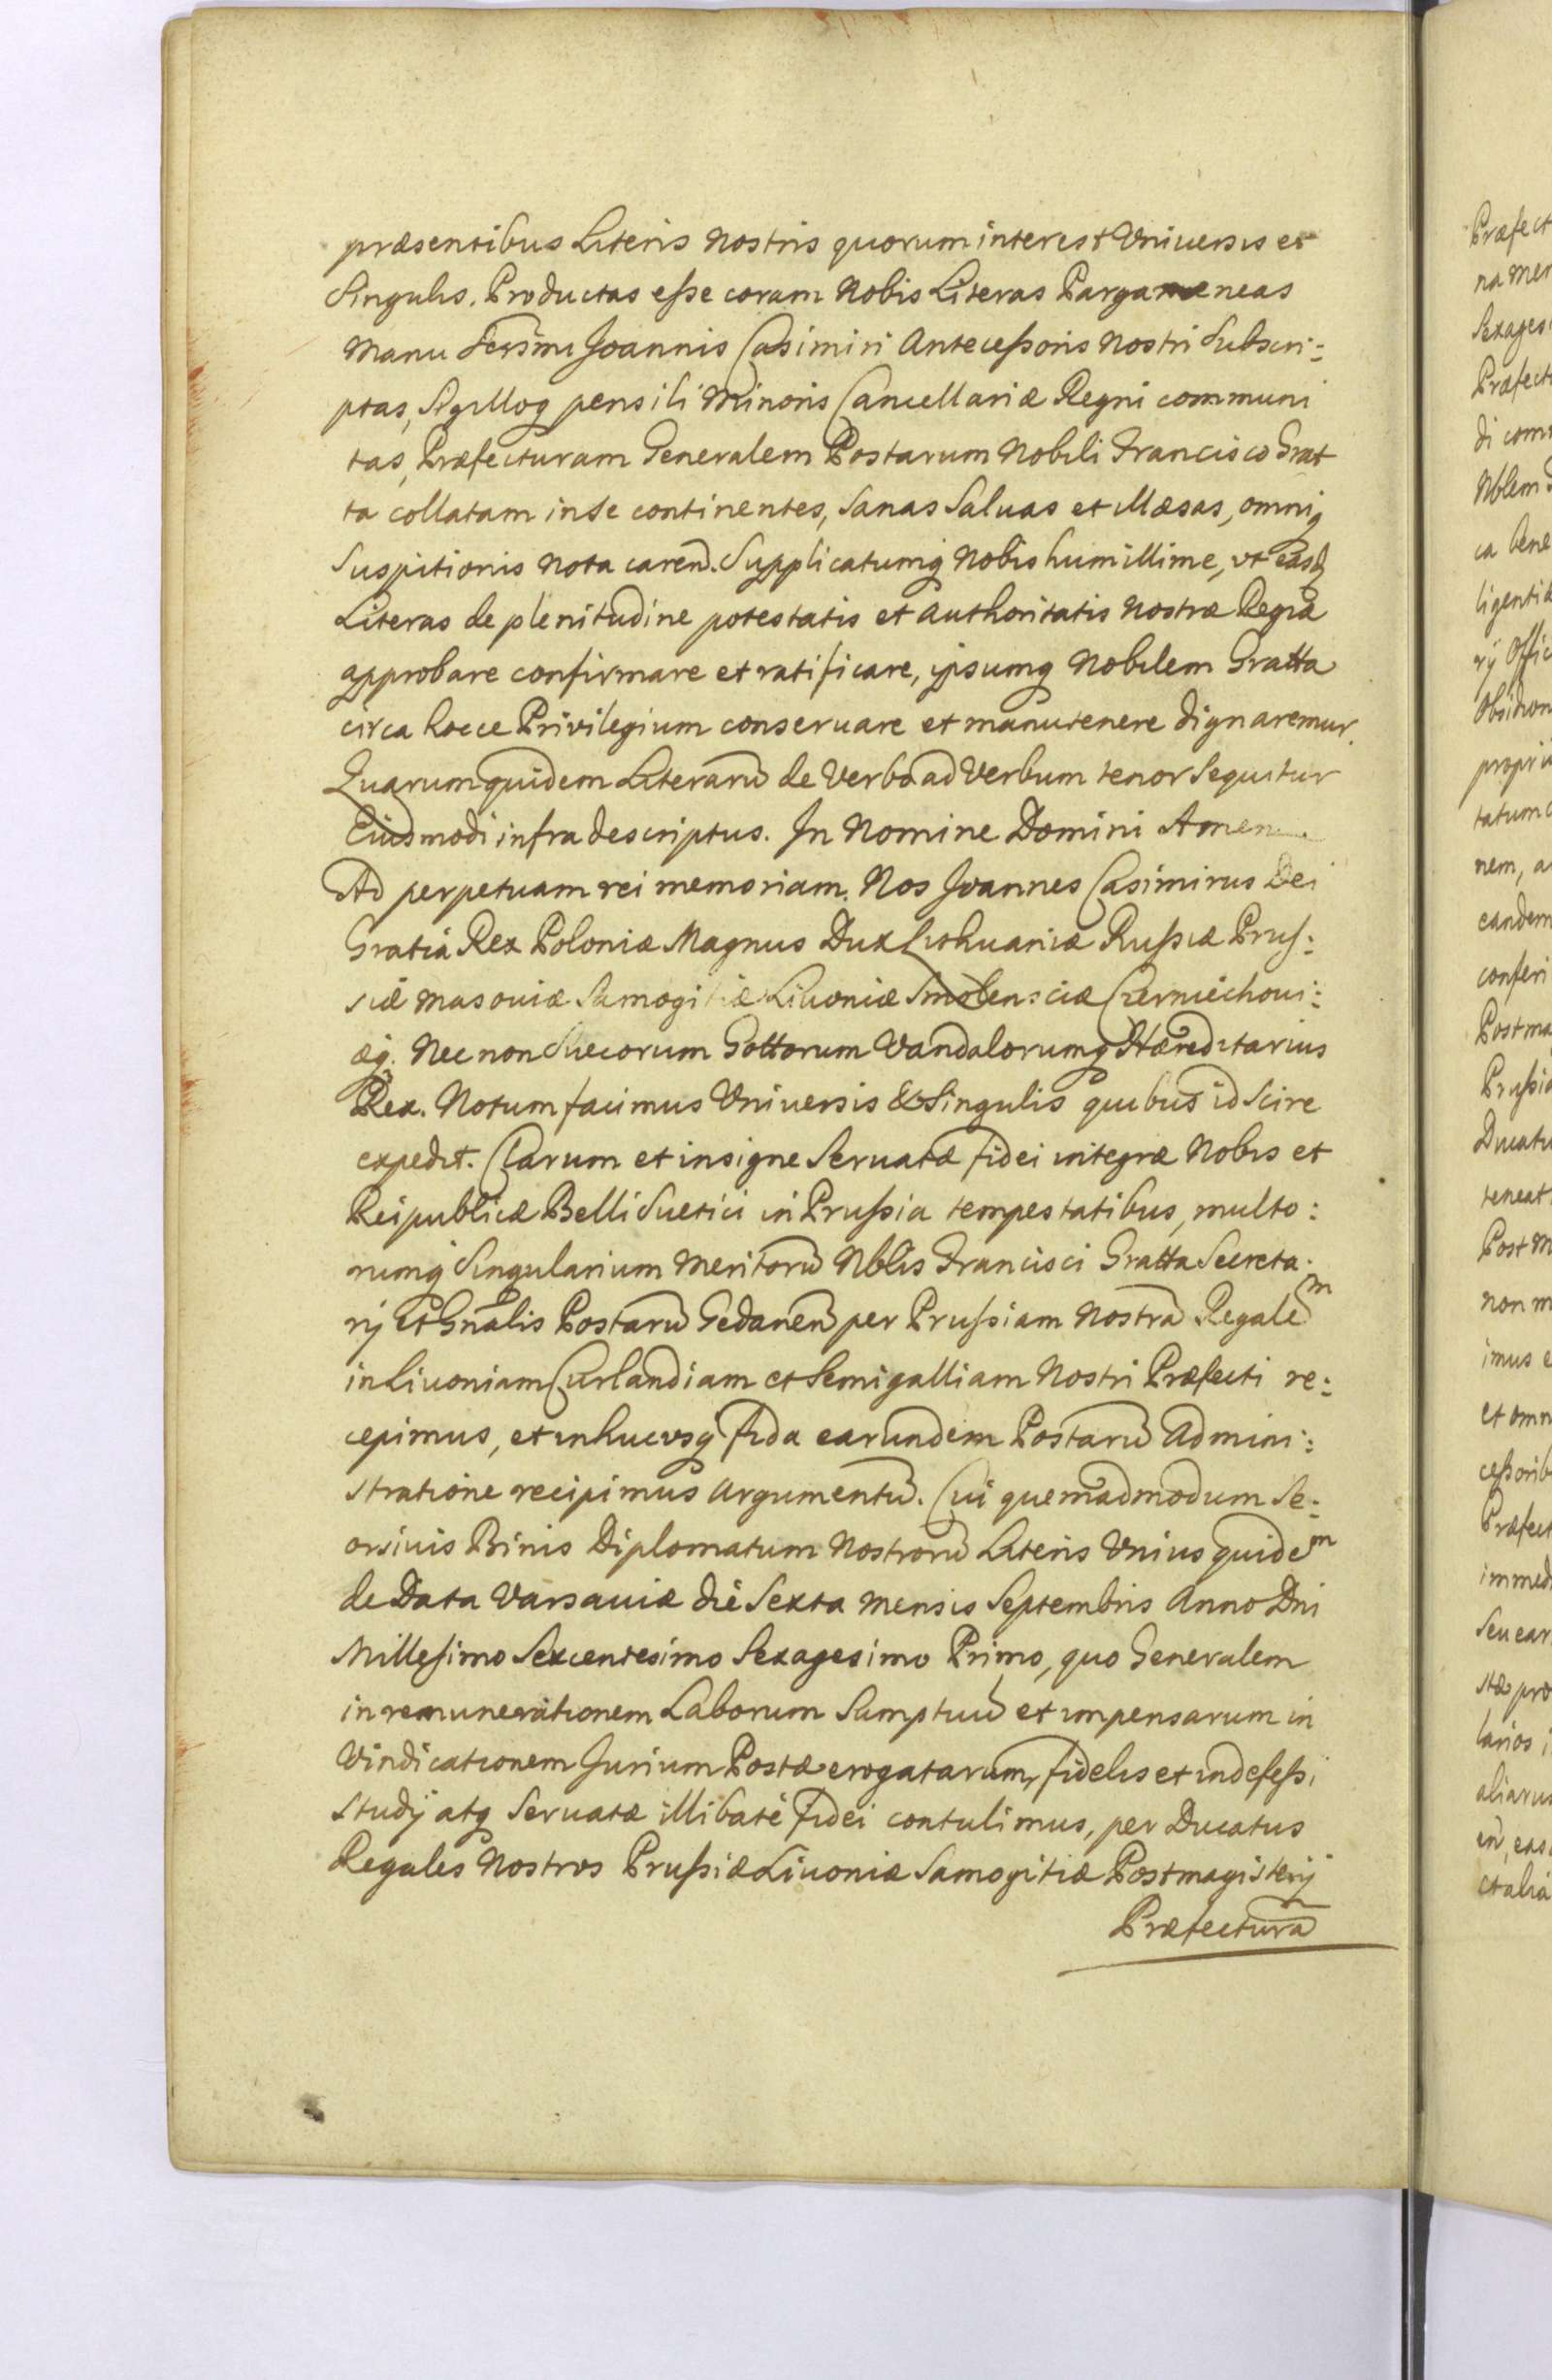 præsentibus Literis Nostris quorum interest Vniuersis et
Singulis. Productas esse coram Nobis Literas Pargameneas
Manu Serssmi Joannis Casimiri Antecessoris Nostri Subscri:
ptas, Sigilloq pensili Minoris Cancellariæ Regni communi
tas, Præfecturam Generalem Postarum Nobili Francisco Grat
ta collatam in se continentes, Sanas Saluas et illæsas, omniq
Suspitionis nota caren. Supplicatumq Nobis humillime, vt easd
Literas de plenitudine potestatis et authoritatis Nostræ Regiæ
approbare confirmare et ratificare, ipsumq Nobilem Gratta
circa hocce Privilegium conseruare et manutenere dignaremur.
Quarum quidem Literarū de Verbo ad Verbum tenor Sequitur
Eiusmodi infra descriptus. In Nomine Domini Amen.
Ad perpetuam rei memoriam. Nos Joannes Casimirus Dei
Gratiâ Rex Poloniæ Magnus Dux Lithuaniæ Russiæ Prus:
siæ Masouiæ Samogitiæ Liuoniæ Smolensciæ Czerniechoui:
æq. Nec non Suecorum Gottorum Vandalorumq Hæreditarius
Rex. Notum facimus Vniuersis & Singulis quibus id Scire
expedit. Clarum et insigne Seruatæ fidei integræ Nobis et
Reipublicæ Belli Suetici in Prussia tempestatibus, multo:
rumq Singularium Meritorū Nblis Francisci Gratta Secreta:
rij et Gnalis Postarū Gedanen per Prussiam Nostrā Regalem
in Liuoniam Curlandiam et Semigalliam Nostri Præfecti re:
cepimus, et in hucvsq fida earundem Postarū Admini:
stratione recipimus argumentū. Cui quemadmodum Se:
orsiuis Binis Diplomatum Nostrorū Literis Vnius quidem
de Data Varsauiæ die Sexta Mensis Septembris Anno Dni
Millesimo Sexcentesimo Sexagesimo Primo, quo Generalem
in remunerationem Laborum Sumptuū et impensarum in
Vindicationem Jurium Postæ erogatarum, fidelis et indefessi
Studij atq Seruatæ illibaté fidei contulimus, per Ducatus
Regales Nostros Prussiæ Liuoniæ Samogitiæ Postmagisterij
Præfecturā
Præfect
na Men
Sexages
Præfect
di com
Nblem
ca bene
ligentiæ
rij Offic
propri
tatum
nem, a
eandem
conferi
Postma
Prussi
Ducatu
teneat
Post M
non m
imus e
et omn
cessorib
Præfect
immed
Seu ear
stæ pro
larios i
aliarū
et alia